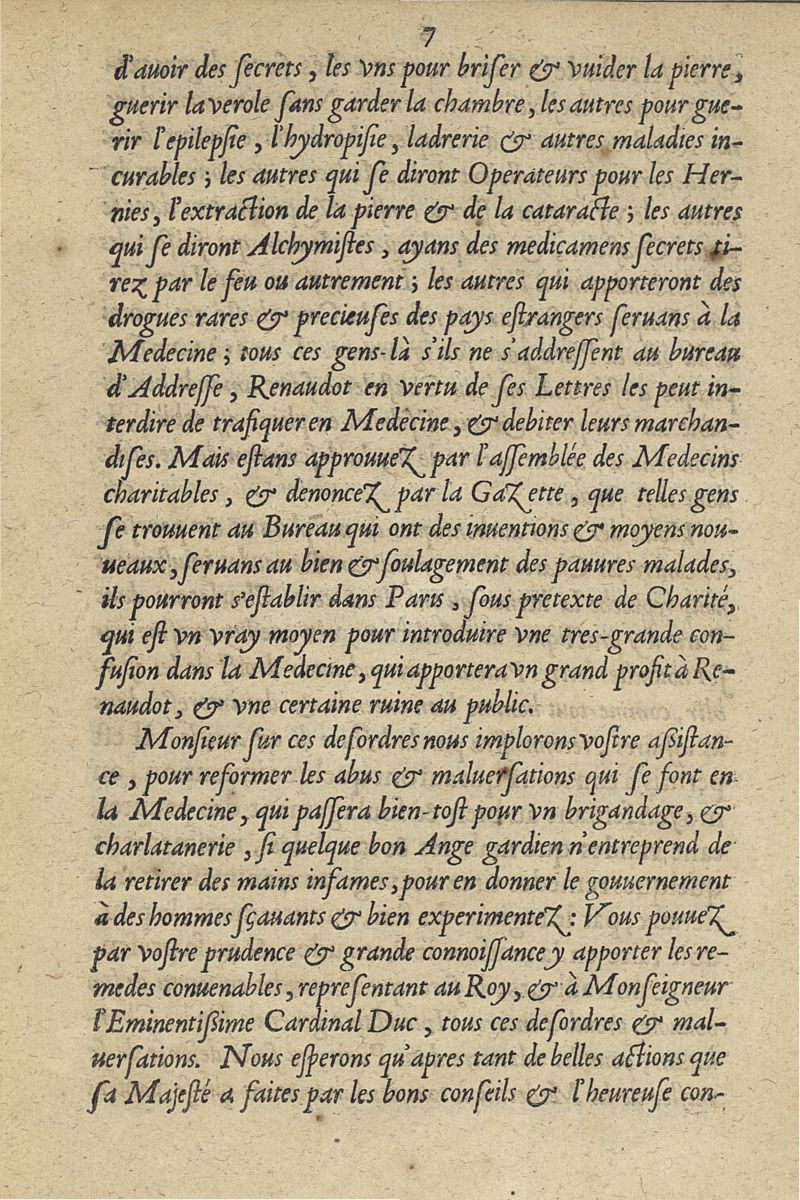 7
d'auoir des ſecrets, les vns pour briſer & vuider la pierre,
guerir la verole ſans garder la chambre, les autres pour gue-
rir l'epilepſie, l'hydropiſie, ladrerie & autres maladies in-
curables; les autres qui ſe diront Operateurs pour les Her-
nies, l'extraction de la pierre & de la cataracte; les autres
qui ſe diront Alchymiſtes, ayans des medicamens ſecrets ti-
rez par le feu ou autrement; les autres qui apporteront des
drogues rares & precieuſes des pays eſtrangers ſeruans à la
Medecine; tous ces gens-là s'ils ne s'addreſſent au bureau
d'Addreſſe, Renaudot en vertu de ſes Lettres les peut in-
terdire de trafiquer en Medecine, & debiter leurs marchan-
diſes. Mais eſtans approuuez par l'aſſemblée des Medecins
charitables, & denoncez par la Gazette, que telles gens
ſe trouuent au Bureau qui ont des inuentions & moyens nou-
ueaux, ſeruans au bien & ſoulagement des pauures malades,
ils pourront s'eſtablir dans Paris, ſous pretexte de Charité,
qui eſt vn vray moyen pour introduire vne tres-grande con-
fuſion dans la Medecine, qui apportera vn grand profit à Re-
naudot, & vne certaine ruine au public.
Monſieur ſur ces deſordres nous implorons voſtre aſſiſtan-
ce, pour reformer les abus & maluerſations qui ſe font en
la Medecine, qui paſſera bien-toſt pour vn brigandage, &
charlatanerie, ſi quelque bon Ange gardien n'entreprend de
la retirer des mains infames, pour en donner le gouuernement
à des hommes ſçauants & bien experimentez: Vous pouuez
par voſtre prudence & grande connoiſſance y apporter les re-
medes conuenables, repreſentant au Roy, & à Monſeigneur
l'Eminentiſſime Cardinal Duc, tous ces deſordres & mal-
uerſations. Nous eſperons qu'apres tant de belles actions que
ſa Majeſté a faites par les bons conſeils & l'heureuſe con-